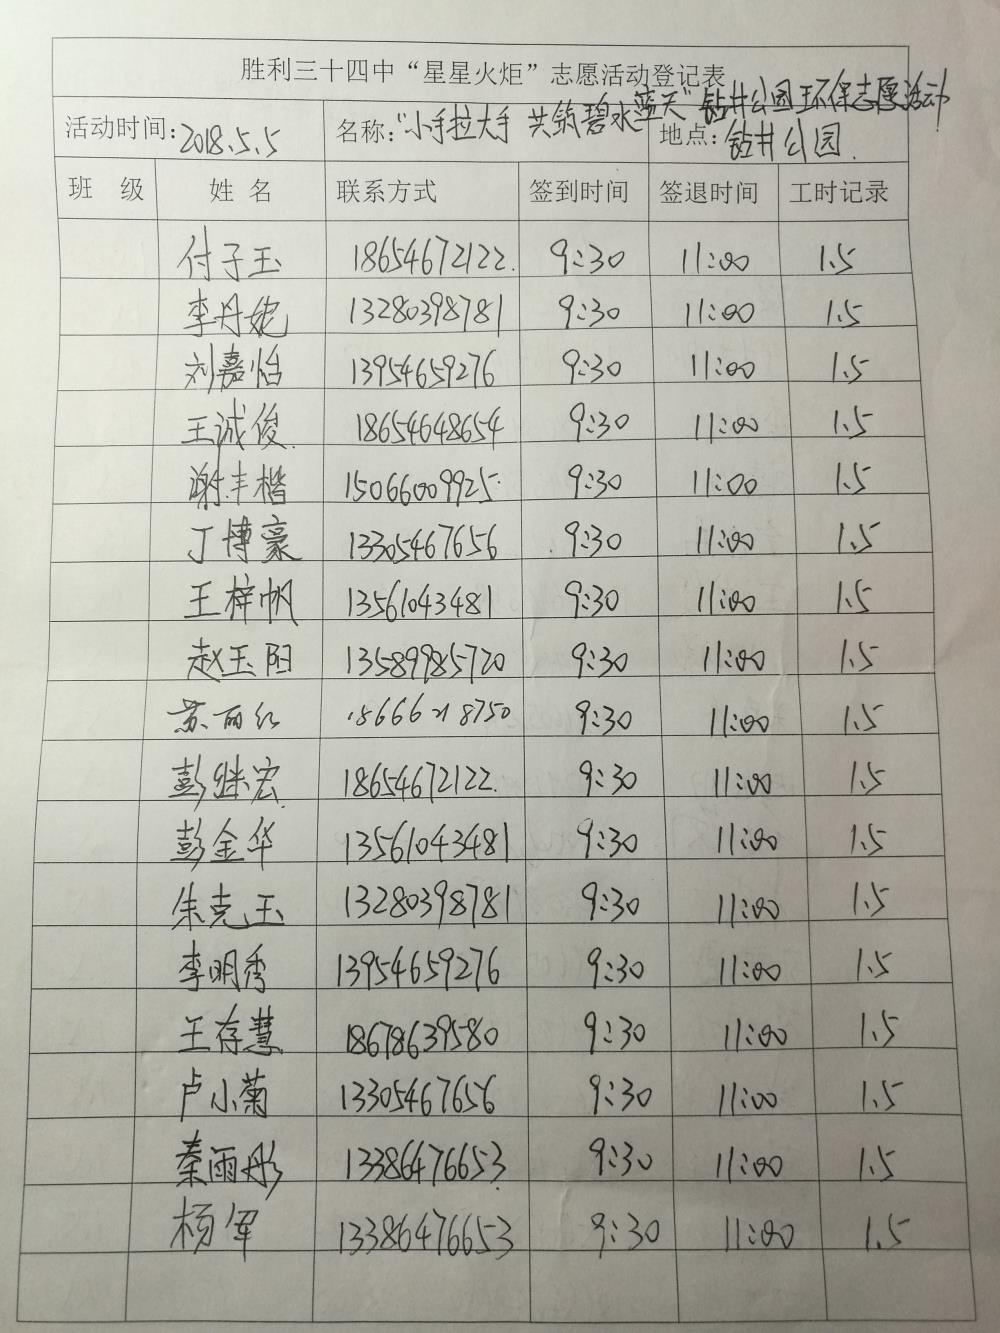 胜利三十四中“星星火炬”志愿活动登记表
活动时间：2018.5.5 名称：“小手拉大手 共筑碧水蓝天”钻井公园环保志愿活动 地点：钻井公园.
班 级 姓 名 联系方式 签到时间 签退时间 工时记录
付子玉 18654672122. 9:30 11:00 1.5
李丹妮 13280398781 9:30 11:00 1.5
刘嘉怡 13954659276 9:30 11:00 1.5
王诚俊 18654648654 9:30 11:00 1.5
谢丰楷 15066009925 9:30 11:00 1.5
丁博豪 13305467656 9:30 11:00 1.5
王梓帆 13561043481 9:30 11:00 1.5
赵玉阳 13589985720 9:30 11:00 1.5
苏丽红 18666218750 9:30 11:00 1.5
彭继宏 18654672122. 9:30 11:00 1.5
彭金华 13561043481 9:30 11:00 1.5
朱克玉 13280398781 9:30 11:00 1.5
李明秀 13954659276 9:30 11:00 1.5
王存慧 18678639580 9:30 11:00 1.5
卢小菊 13305467656 9:30 11:00 1.5
秦雨彤 13386476653 9:30 11:00 1.5
杨军 13386476653 9:30 11:00 1.5